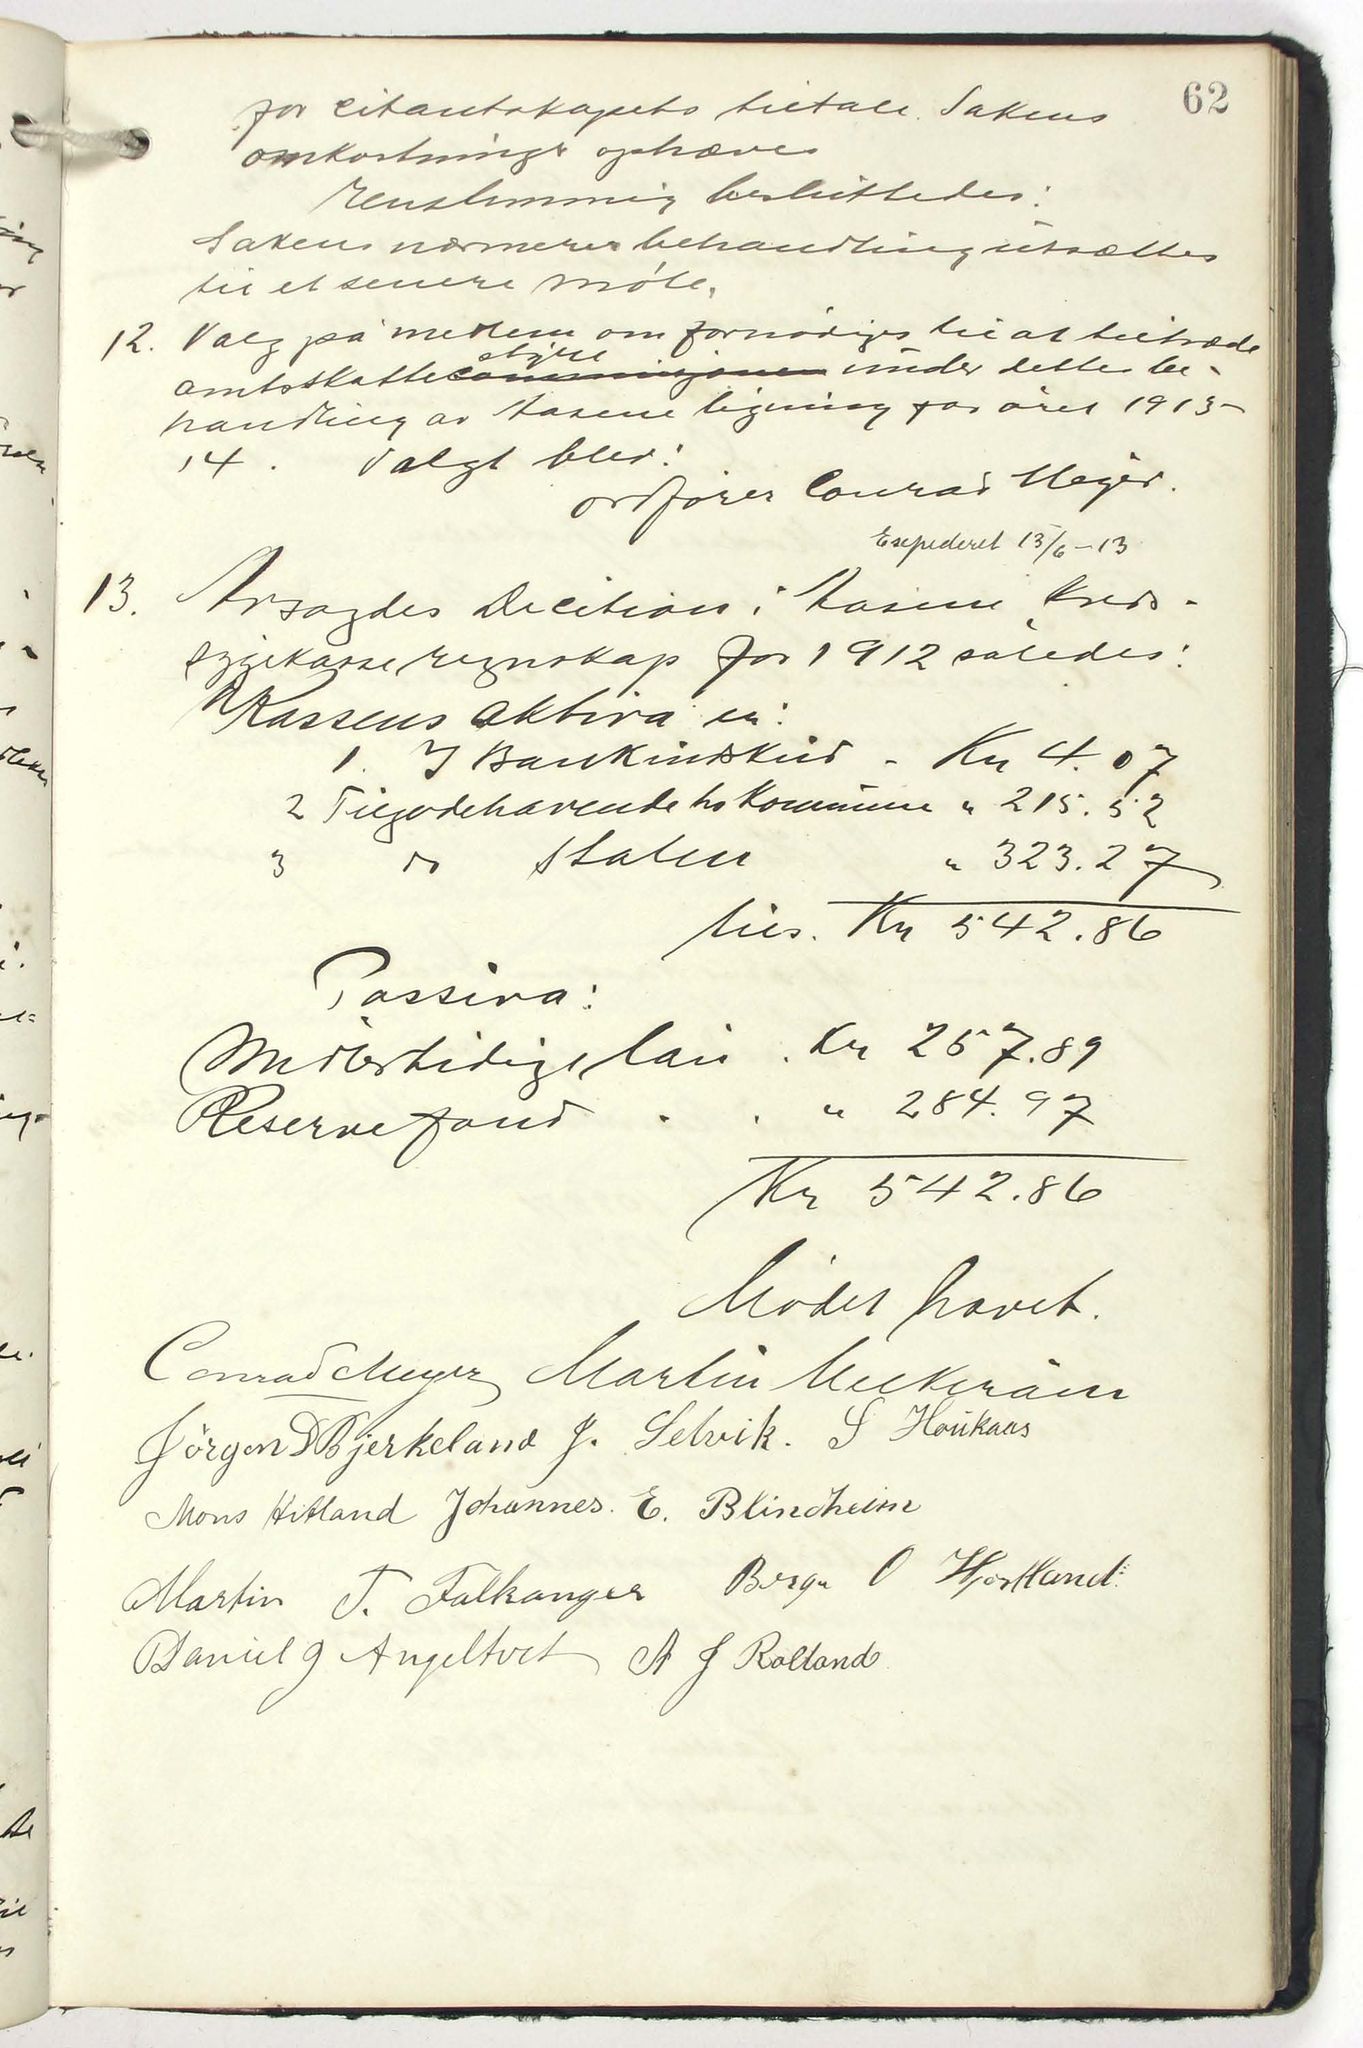 62
for citantskapets tiltale. Sakens
omkostninger ophæves
Enstemmig besluttedes:
Sakens nærmere behandling utsættes
til et senere møte.
12. Valg på medlem om fornødiges til at tiltræde
styre
amtsskattecommisjonen under dettes be-
handling av Aasene ligning for året 1913-
14. Valgt blev:
ordfører Conrad Meyer.
Expederet 13/6-13
13. Avsagdes Decition i Aasene Kreds-
sykekasse regnskap for 1912 således:
Kassens aktiva er:
1. I Bankindskud - Kr 4.07
2 Tilgodehavende hs Kommune " 215.52
3 do Staten " 323.27
tils. Kr 542.86
Passiva:
Midlertidige lån . Kr 257.89
Reservefond . . " 284.97
Kr 542.86
Mødet hævet.
Conrad Meyer Martin
Jörgen D Bjerkeland J. Selvik. S Haukaas
Mons Hitland Johannes. E. Blindheim
Martin T. Falkanger Berge O Hjortland
Daniel J Angeltvet A J Rolland